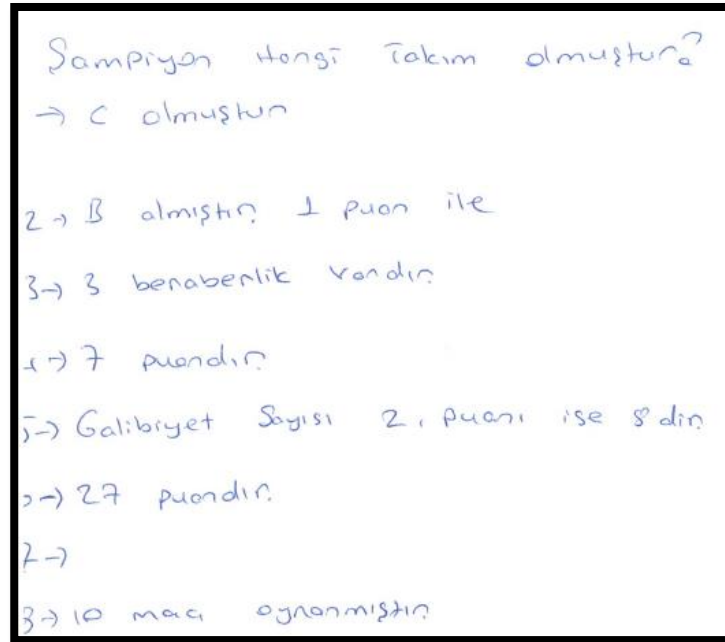 Şampiyon Hangi Takım olmuştur?
→ C olmuştur
2 → B almıştır. 1 puan ile
3 → 3 beraberlik vardır.
→ 7 puandır.
5 → Galibiyet Sayısı 2, puanı ise 8 dir
→ 27 puandır.
7 →
8 → 10 maç oynanmıştır.